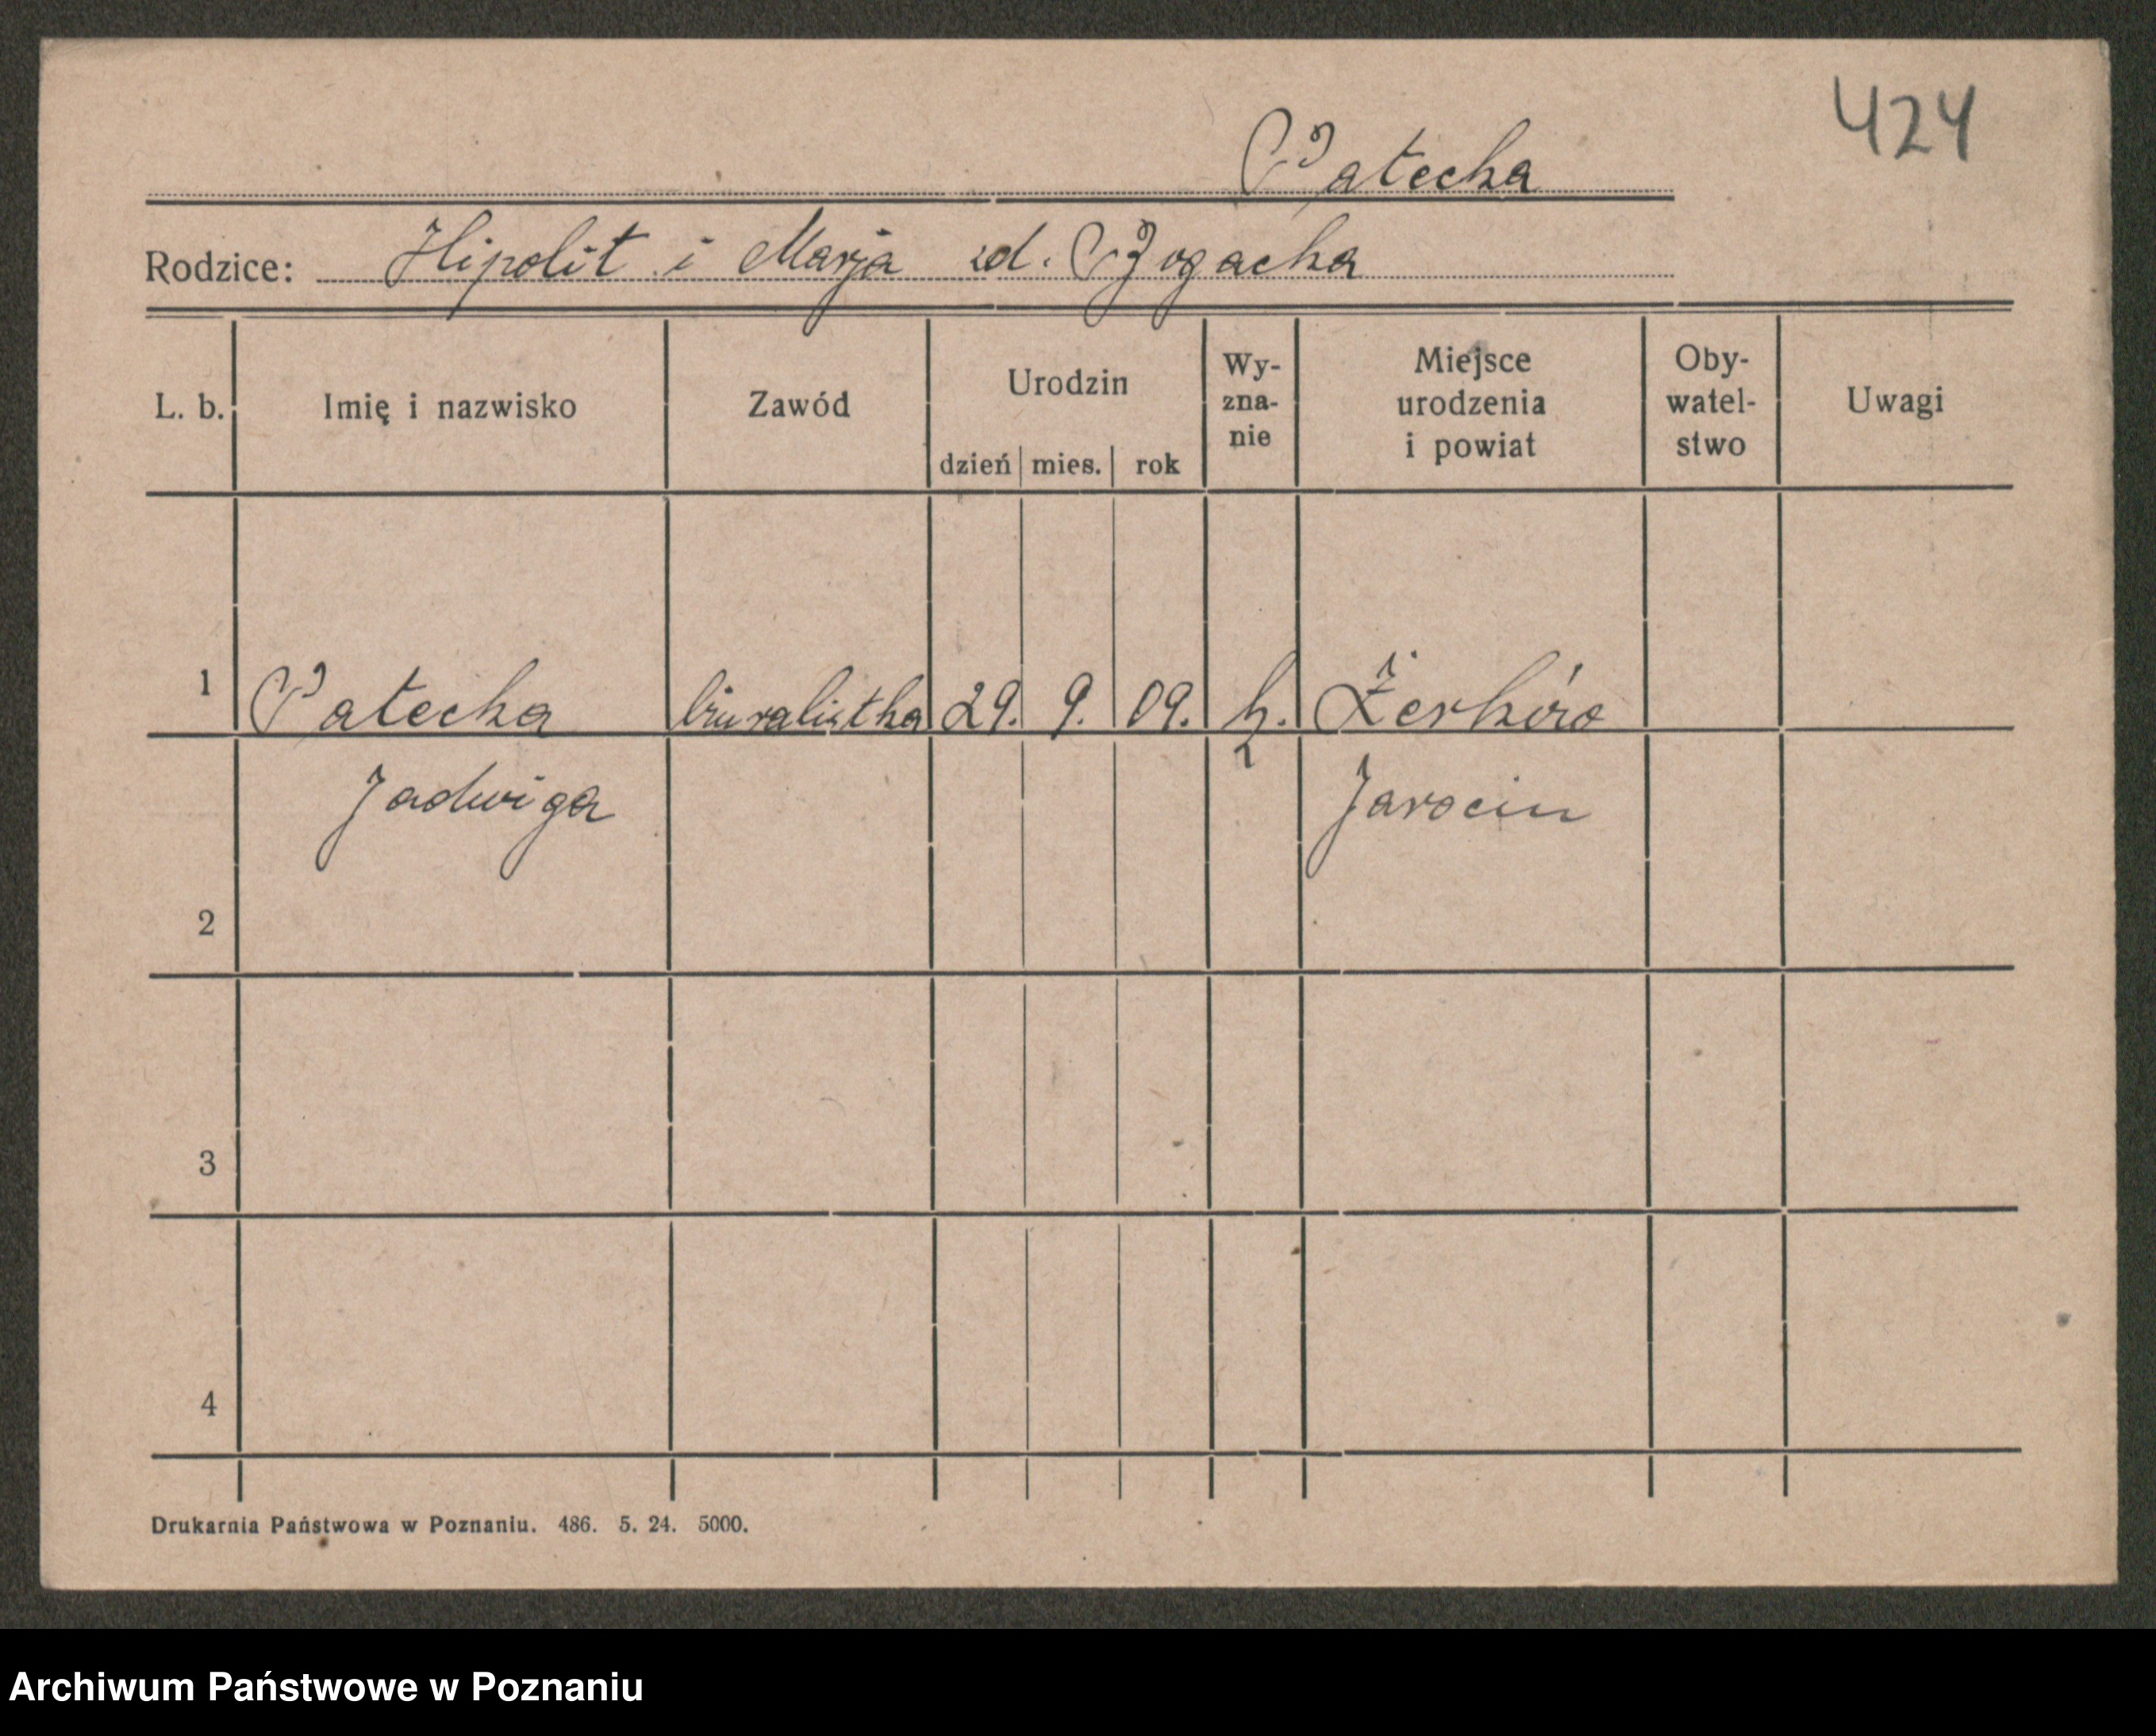 424
Patecka
Rodzice: Hipolit i Marja zd. Bogacka
L. b. Imię i nazwisko Zawód Urodzin dzień mies. rok Wy-zna-nie Miejsce urodzenia i powiat Oby-watel-stwo Uwagi
1 Patecka biuralistka 29. 9. 09. k. Żerków
Jadwiga Jarocin
2
3
4
Drukarnia Państwowa w Poznaniu. 486. 5. 24. 5000.
Archiwum Państwowe w Poznaniu